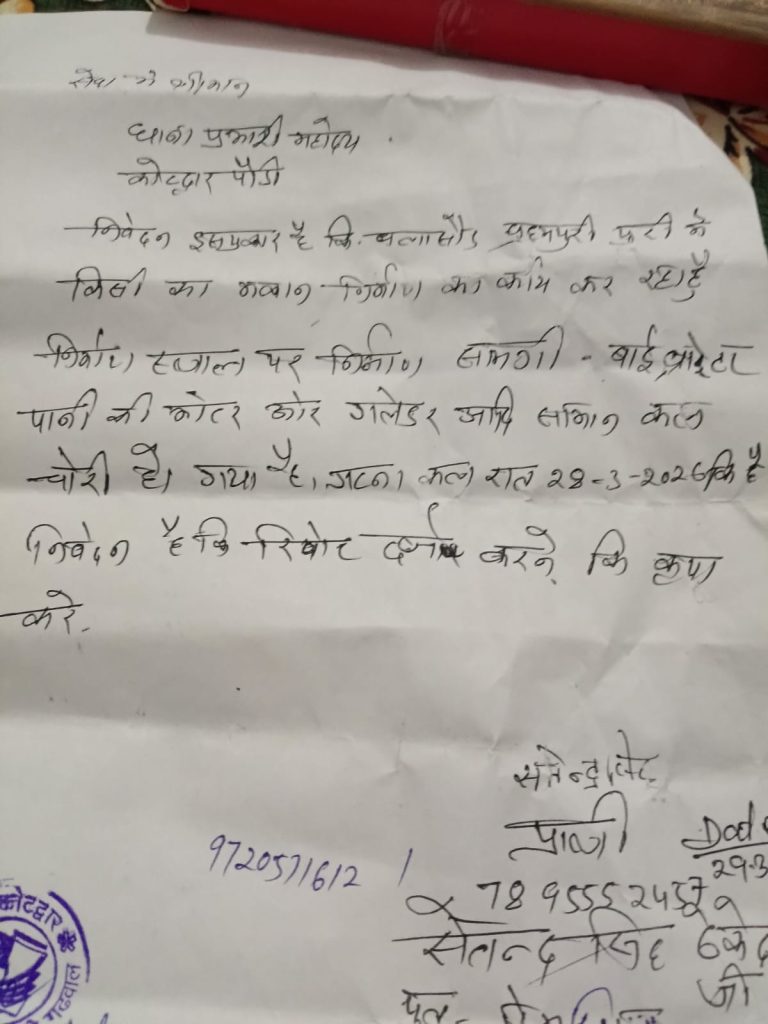 सेवा मे श्रीमान
थाना प्रभारी महोदय
कोटद्वार पौडी
निवेदन इसप्रकार है कि. बलासौड ब्रहमपुरी पुरी मे
किसी का मकान निर्माण का कार्य कर रहा हुँ
निर्माण स्थाल पर निर्माण सामगी - बाईब्रेटर
पानी की मोटर और गलेडर आदि सामान कल
चोरी हो गया है। घटना कल रात 28-3-2026 कि है
निवेदन है कि रिपोट दर्ज करने कि कृपा
करे.
सतेन्द्र
प्रार्थी
29-3
9720571612
7895552457
सतेन्द्र सिंह ठेकेद
जी
पुत्र-
कोटद्वार
गढवाल